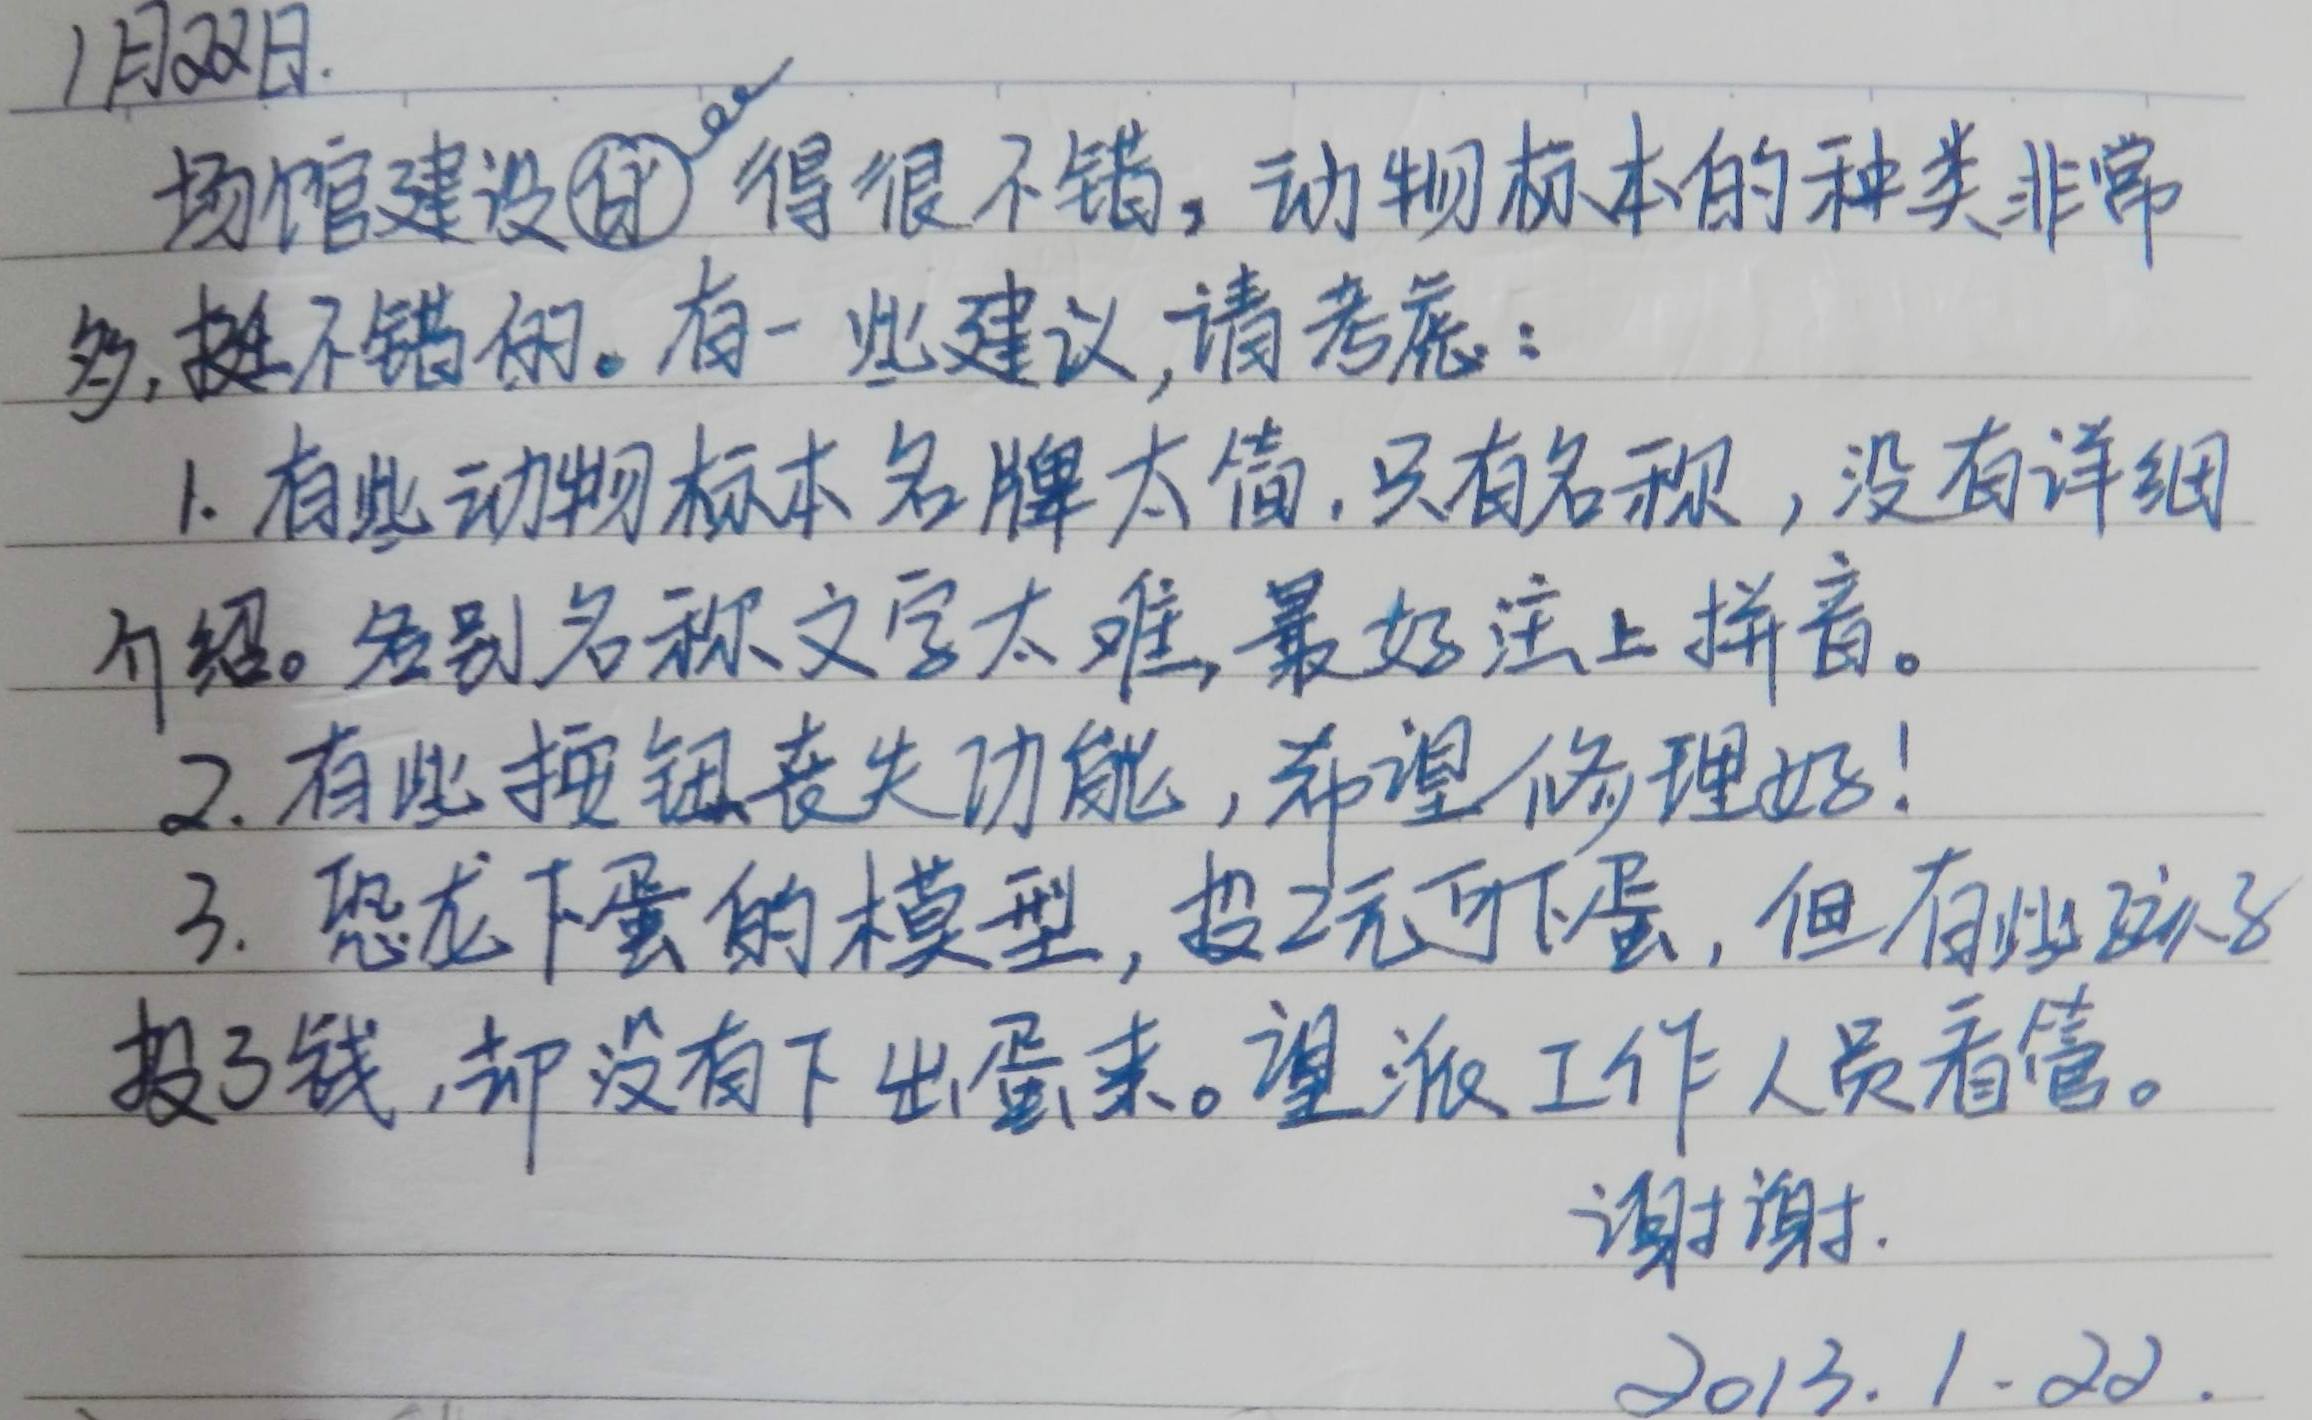 1月22日.
场馆建设得很不错，动物标本的种类非常
多，挺不错的。有一些建议，请考虑：
1. 有些动物标本名牌太简，只有名称，没有详细
介绍。个别名称文字太难，最好注上拼音。
2. 有些按钮丧失功能，希望修理好！
3. 恐龙下蛋的模型，投2元可下蛋，但有些孩子
投了钱，却没有下出蛋来。望派工作人员看管。
谢谢.
2013.1-22.